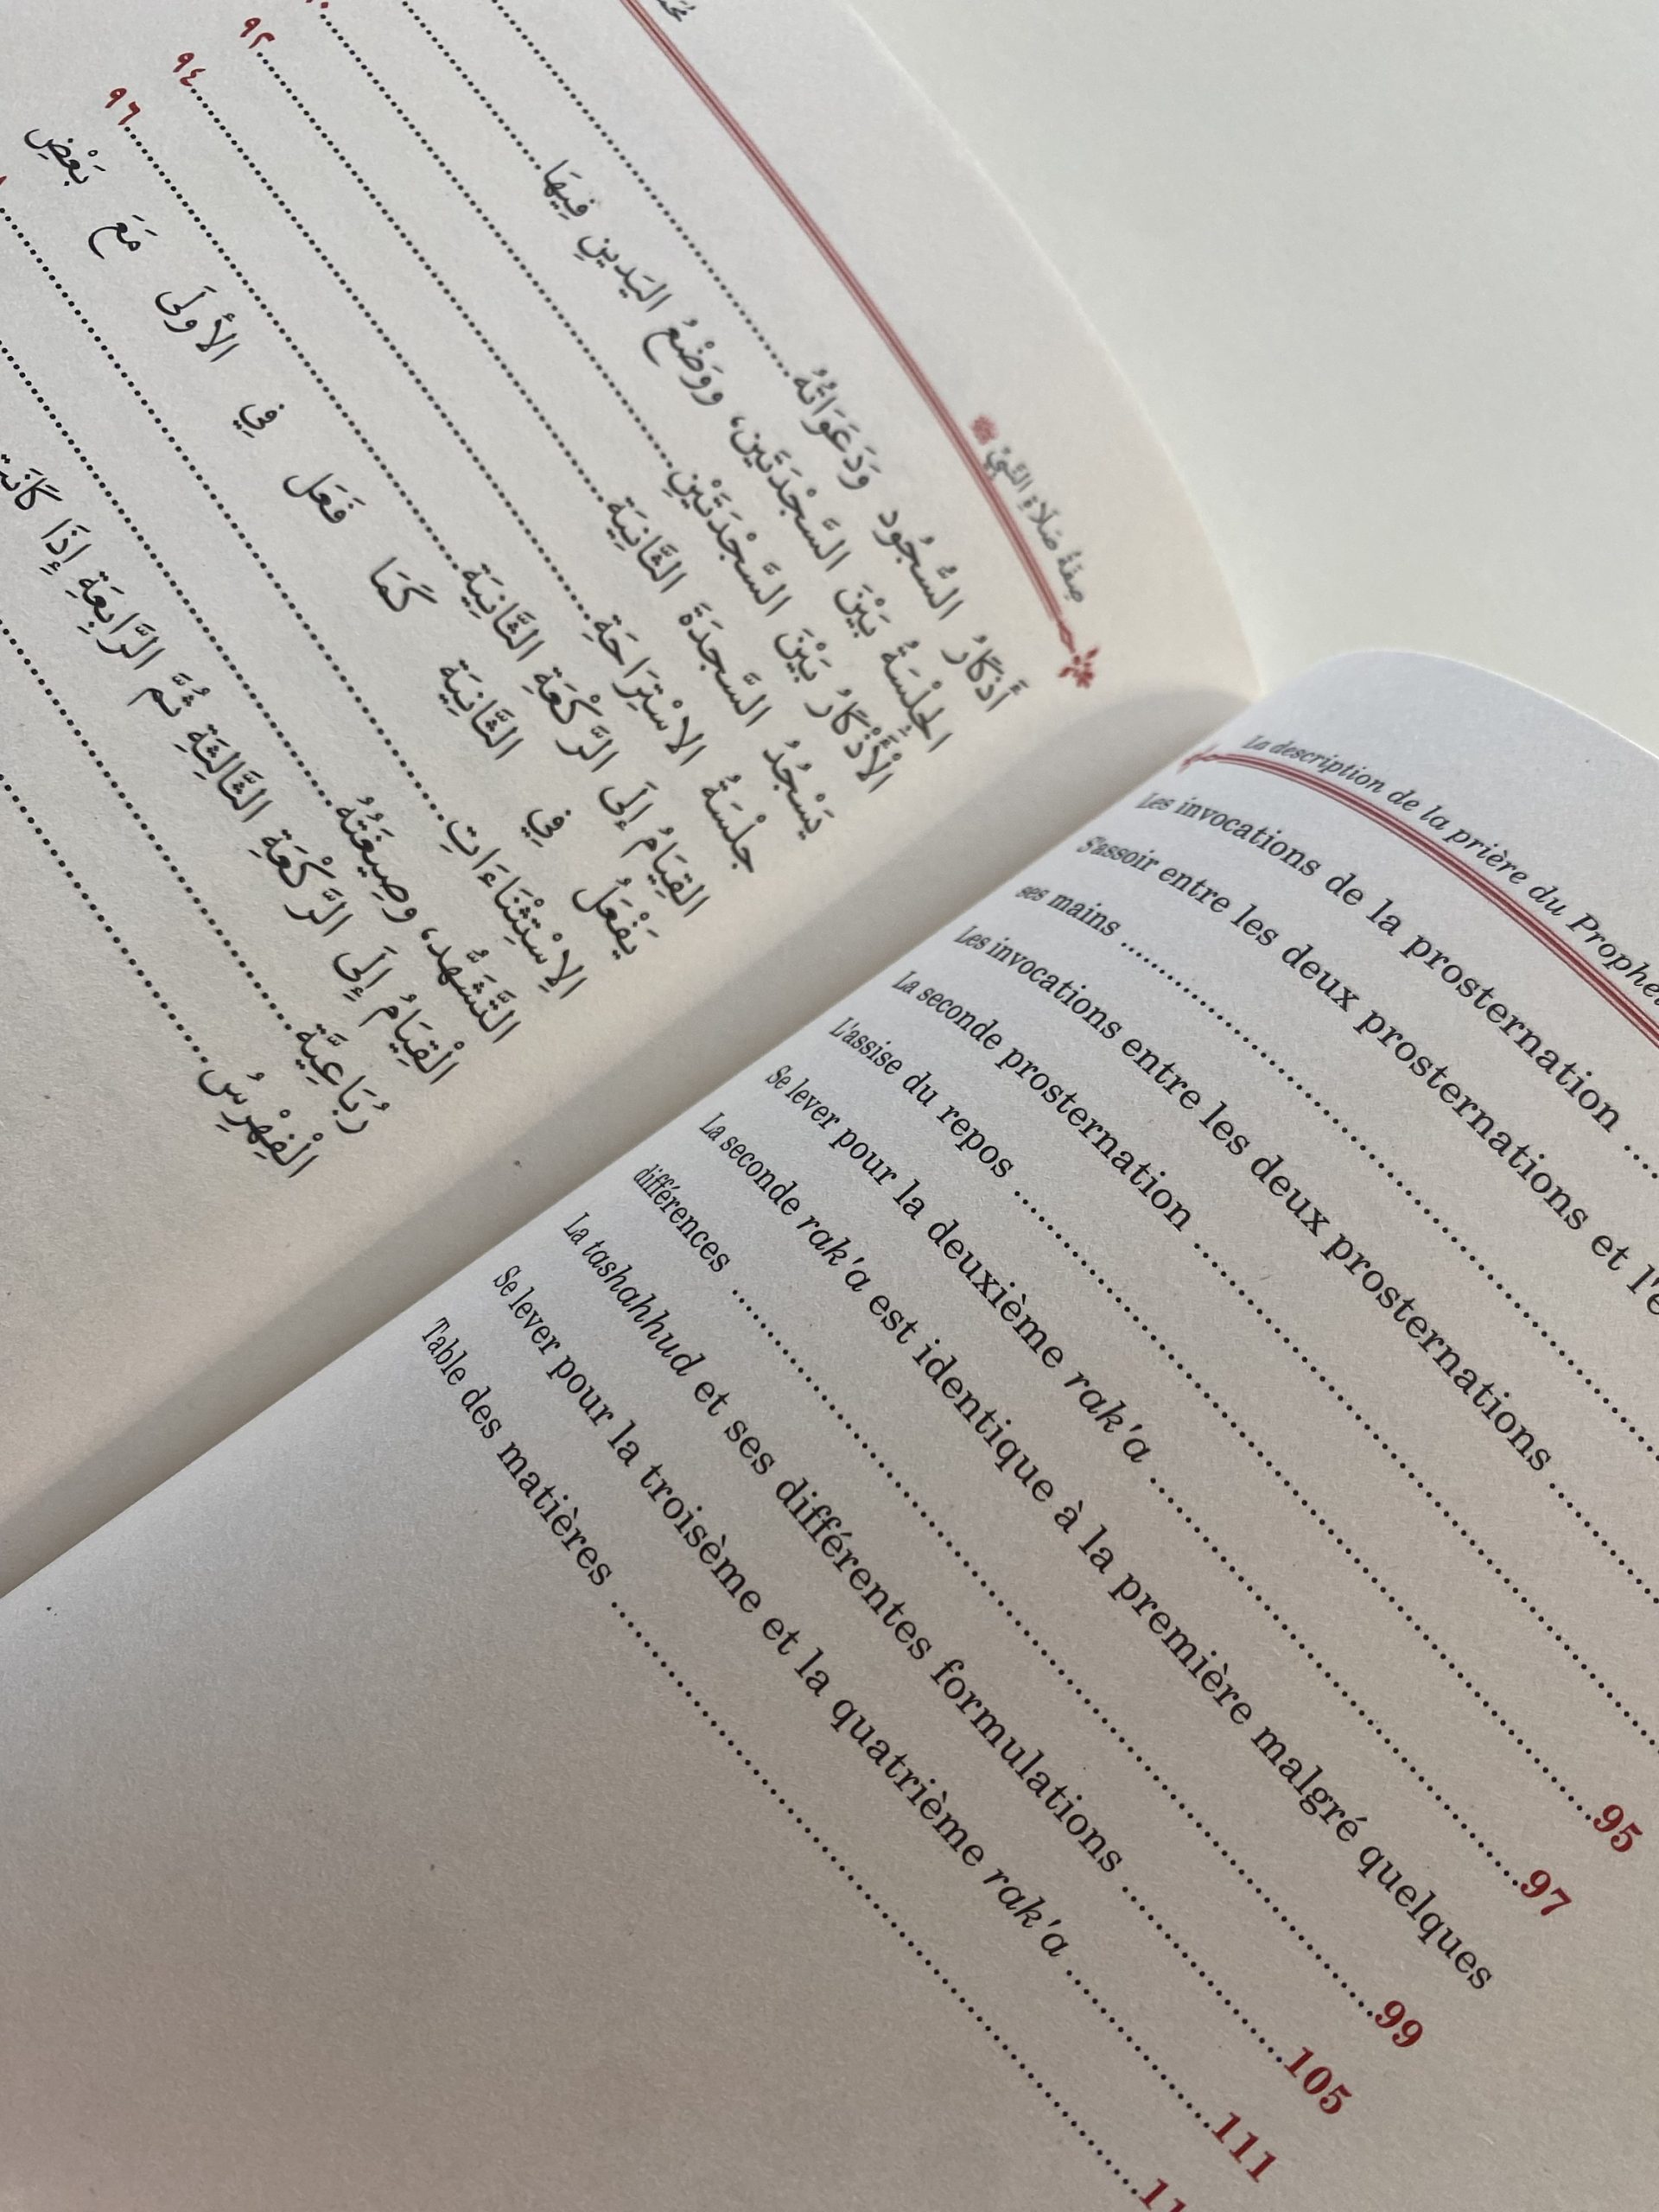 صِفَةُ صَلَاةِ النَّبِيِّ ﷺ
أَذْكَارُ السُّجُودِ وَدَعَوَاتُهُ
الجَلْسَةُ بَيْنَ السَّجْدَتَينِ، وَوَضْعُ اليَدينِ فِيهَا
الْأَذْكَارُ بَيْنَ السَّجْدَتَيْنِ
يَسْجُدُ السَّجدَةَ الثَّانِيَة ٩٢
جِلْسَةُ الاسْتِرَاحَةِ ٩٤
القِيَامُ إِلَى الرَّكْعَةِ الثَّانِيَة ٩٦
يَفْعَلُ فِي الثَّانِيَة كَمَا فَعَل فِي الأولَى مَعَ بَعْضِ
الِاسْتِثْنَاءَاتِ
التَّشَهُّد، وصِيغَتُهُ
الْقِيَامُ إِلَى الرَّكْعَةِ الثَّالِثَةِ ثُمَّ الرَّابِعَةِ إِذَا
رُبَاعِيَّة
الْفِهْرِسُ
La description de la prière du
Les invocations de la prosternation
S'assoir entre les deux prosternations et
ses mains
Les invocations entre les deux prosternations
La seconde prosternation
L'assise du repos 95
Se lever pour la deuxième rak'a 97
La seconde rak'a est identique à la première malgré quelques
différences 99
La tashahhud et ses différentes formulations 105
Se lever pour la troisème et la quatrième rak'a 111
Table des matières